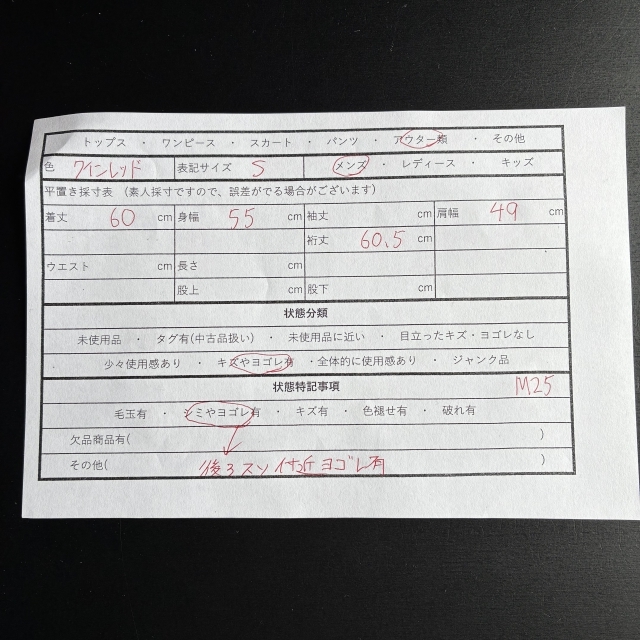 トップス ・ ワンピース ・ スカート ・ パンツ ・ アウター類 ・ その他
色 ワインレッド 表記サイズ S メンズ ・ レディース ・ キッズ
平置き採寸表 （素人採寸ですので、誤差がでる場合がございます）
着丈 60 cm 身幅 55 cm 袖丈 cm 肩幅 49 cm
裄丈 60.5 cm
ウエスト cm 長さ cm
股上 cm 股下 cm
状態分類
未使用品 ・ タグ有(中古品扱い) ・ 未使用品に近い ・ 目立ったキズ・ヨゴレなし
少々使用感あり ・ キズやヨゴレ有 ・全体的に使用感あり ・ ジャンク品
状態特記事項 M25
毛玉有 ・ シミやヨゴレ有 ・ キズ有 ・ 色褪せ有 ・ 破れ有
欠品商品有( )
その他( 後ろスソ付近ヨゴレ有 )